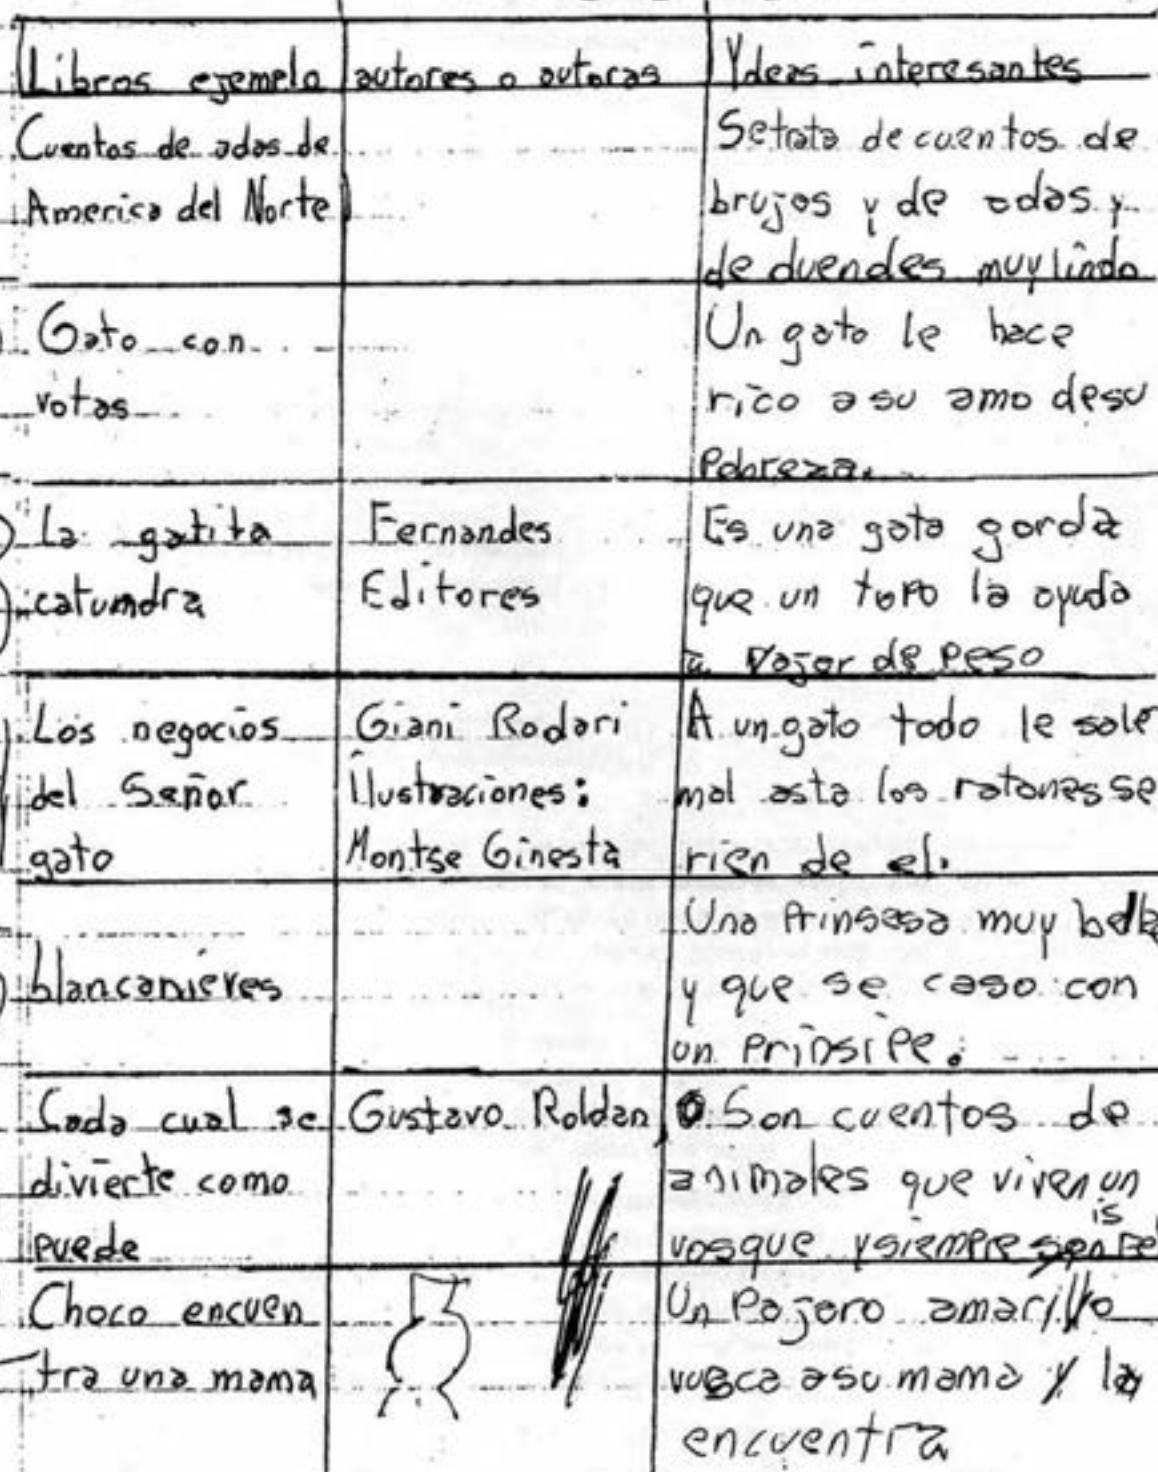 Libros ejemplo autores o autoras Ydeas interesantes
Cuentos de adas de
America del Norte
Setrata de cuentos de
brujos y de adas y
de duendes muy lindo
Gato con
votas
Un gato le hace
rico a su amo desu
Pobreza.
La gatita
catumdra
Fernandes
Editores
Es una gata gorda
que un topo la ayuda
a vajar de peso
Los negocios
del Señor
gato
Giani Rodari
ilustraciones:
Montse Ginesta
A un gato todo le sale
mal asta los ratones se
rien de el.
blancanieves
Una Prinsesa muy bella
y que se caso con
un Prinsipe.
Cada cual se
divierte como
puede
Gustavo Roldan
Son cuentos de
animales que viven un
vosque y siempre
Choco encuen
tra una mama
Un Pajaro amarillo
vusca asu mama y la
encuentra